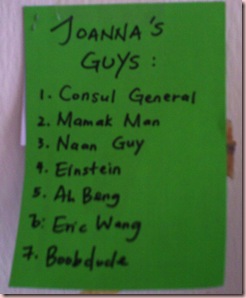 JOANNA'S
GUYS:
1. Consul General
2. Mamak Man
3. Naan Guy
4. Einstein
5. Ah Beng
6. Eric Wang
7. Boobdude